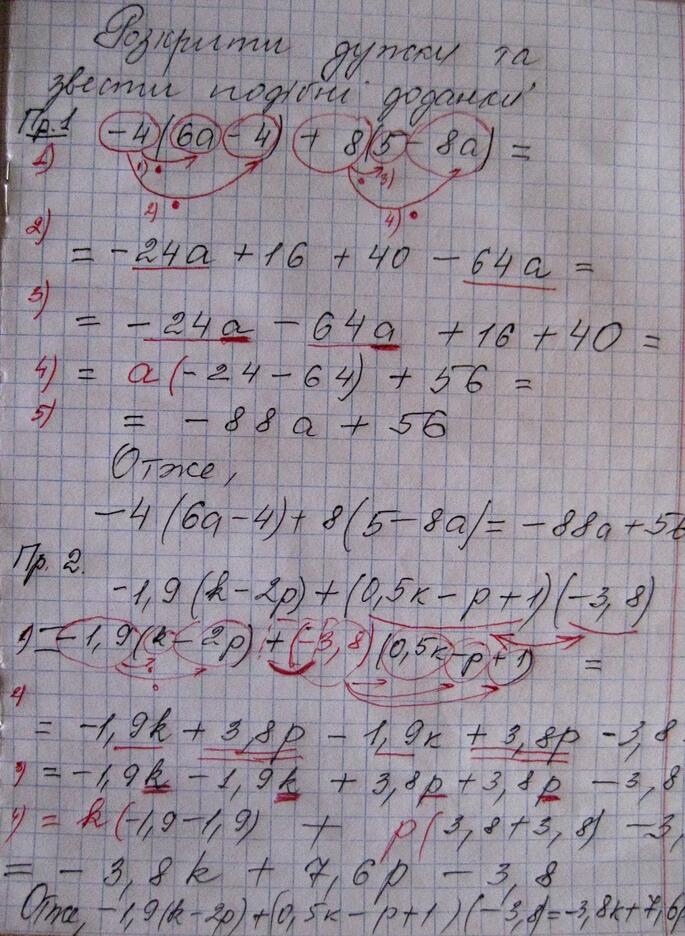 Розкрити дужки та
звести подібні доданки
Пр.1
1) -4(6a-4) + 8(5-8a) =
1) • 2) • 3) • 4) •
2) = -24a +16 +40 -64a =
3) = -24a -64a +16+40 =
4) = a(-24-64) + 56 =
5) = -88a + 56
Отже,
-4(6a-4)+8(5-8a)=-88a+56
Пр. 2.
-1,9(k-2p)+(0,5k-p+1)(-3,8)
1) =-1,9(k-2p)+(-3,8)(0,5k-p+1) =
2) = -1,9k+3,8p-1,9k+3,8p-3,8
3) =-1,9k-1,9k+3,8p+3,8p-3,8
4) = k(-1,9-1,9) + p(3,8+3,8)-3,
= -3,8k + 7,6p - 3,8
Отже, -1,9(k-2p)+(0,5k-p+1)(-3,8)=-3,8k+7,6p